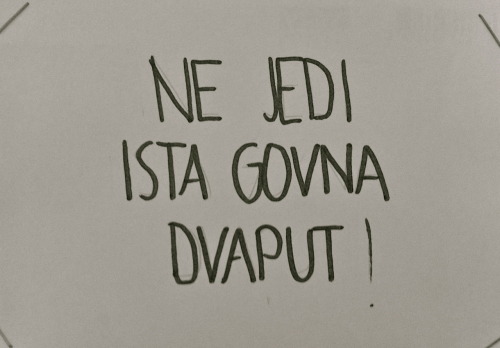 NE JEDI
ISTA GOVNA
DVAPUT !